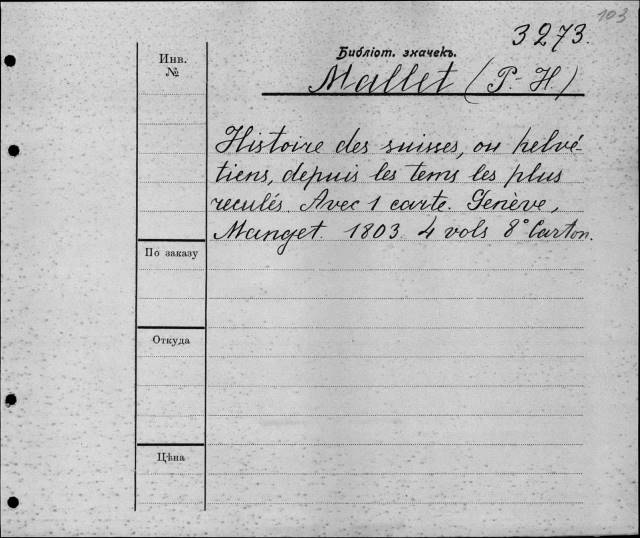 103
3273.
Инв.
№
Библіот. значекъ.
Mallet (P.-H.)
Histoire des suisses, ou helvé-
tiens, depuis les tems les plus
reculés. Avec 1 carte. Genève,
Manget. 1803. 4 vols 8° Carton.
По заказу
Откуда
Цѣна